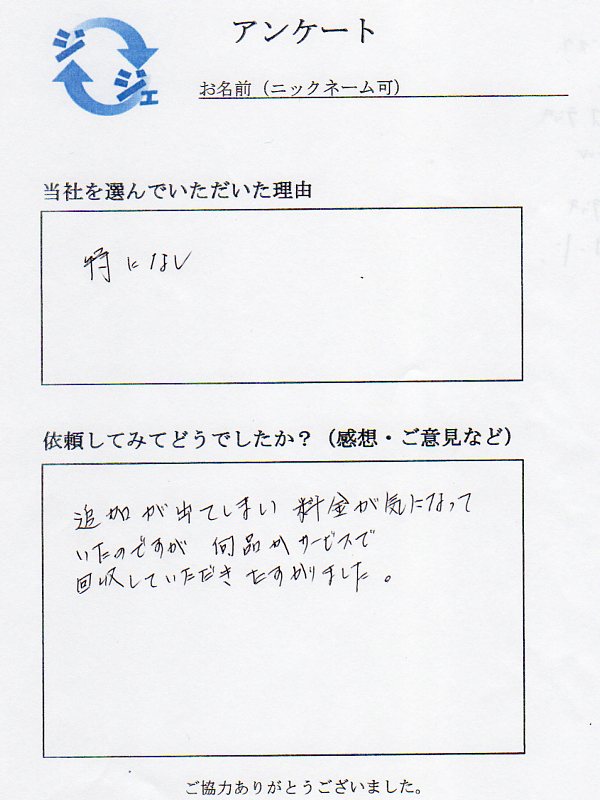 アンケート
ジジェ
お名前（ニックネーム可）
当社を選んでいただいた理由
特になし
依頼してみてどうでしたか？（感想・ご意見など）
追加が出てしまい 料金が気になって
いたのですが 何品かサービスで
回収していただきたすかりました。
ご協力ありがとうございました。